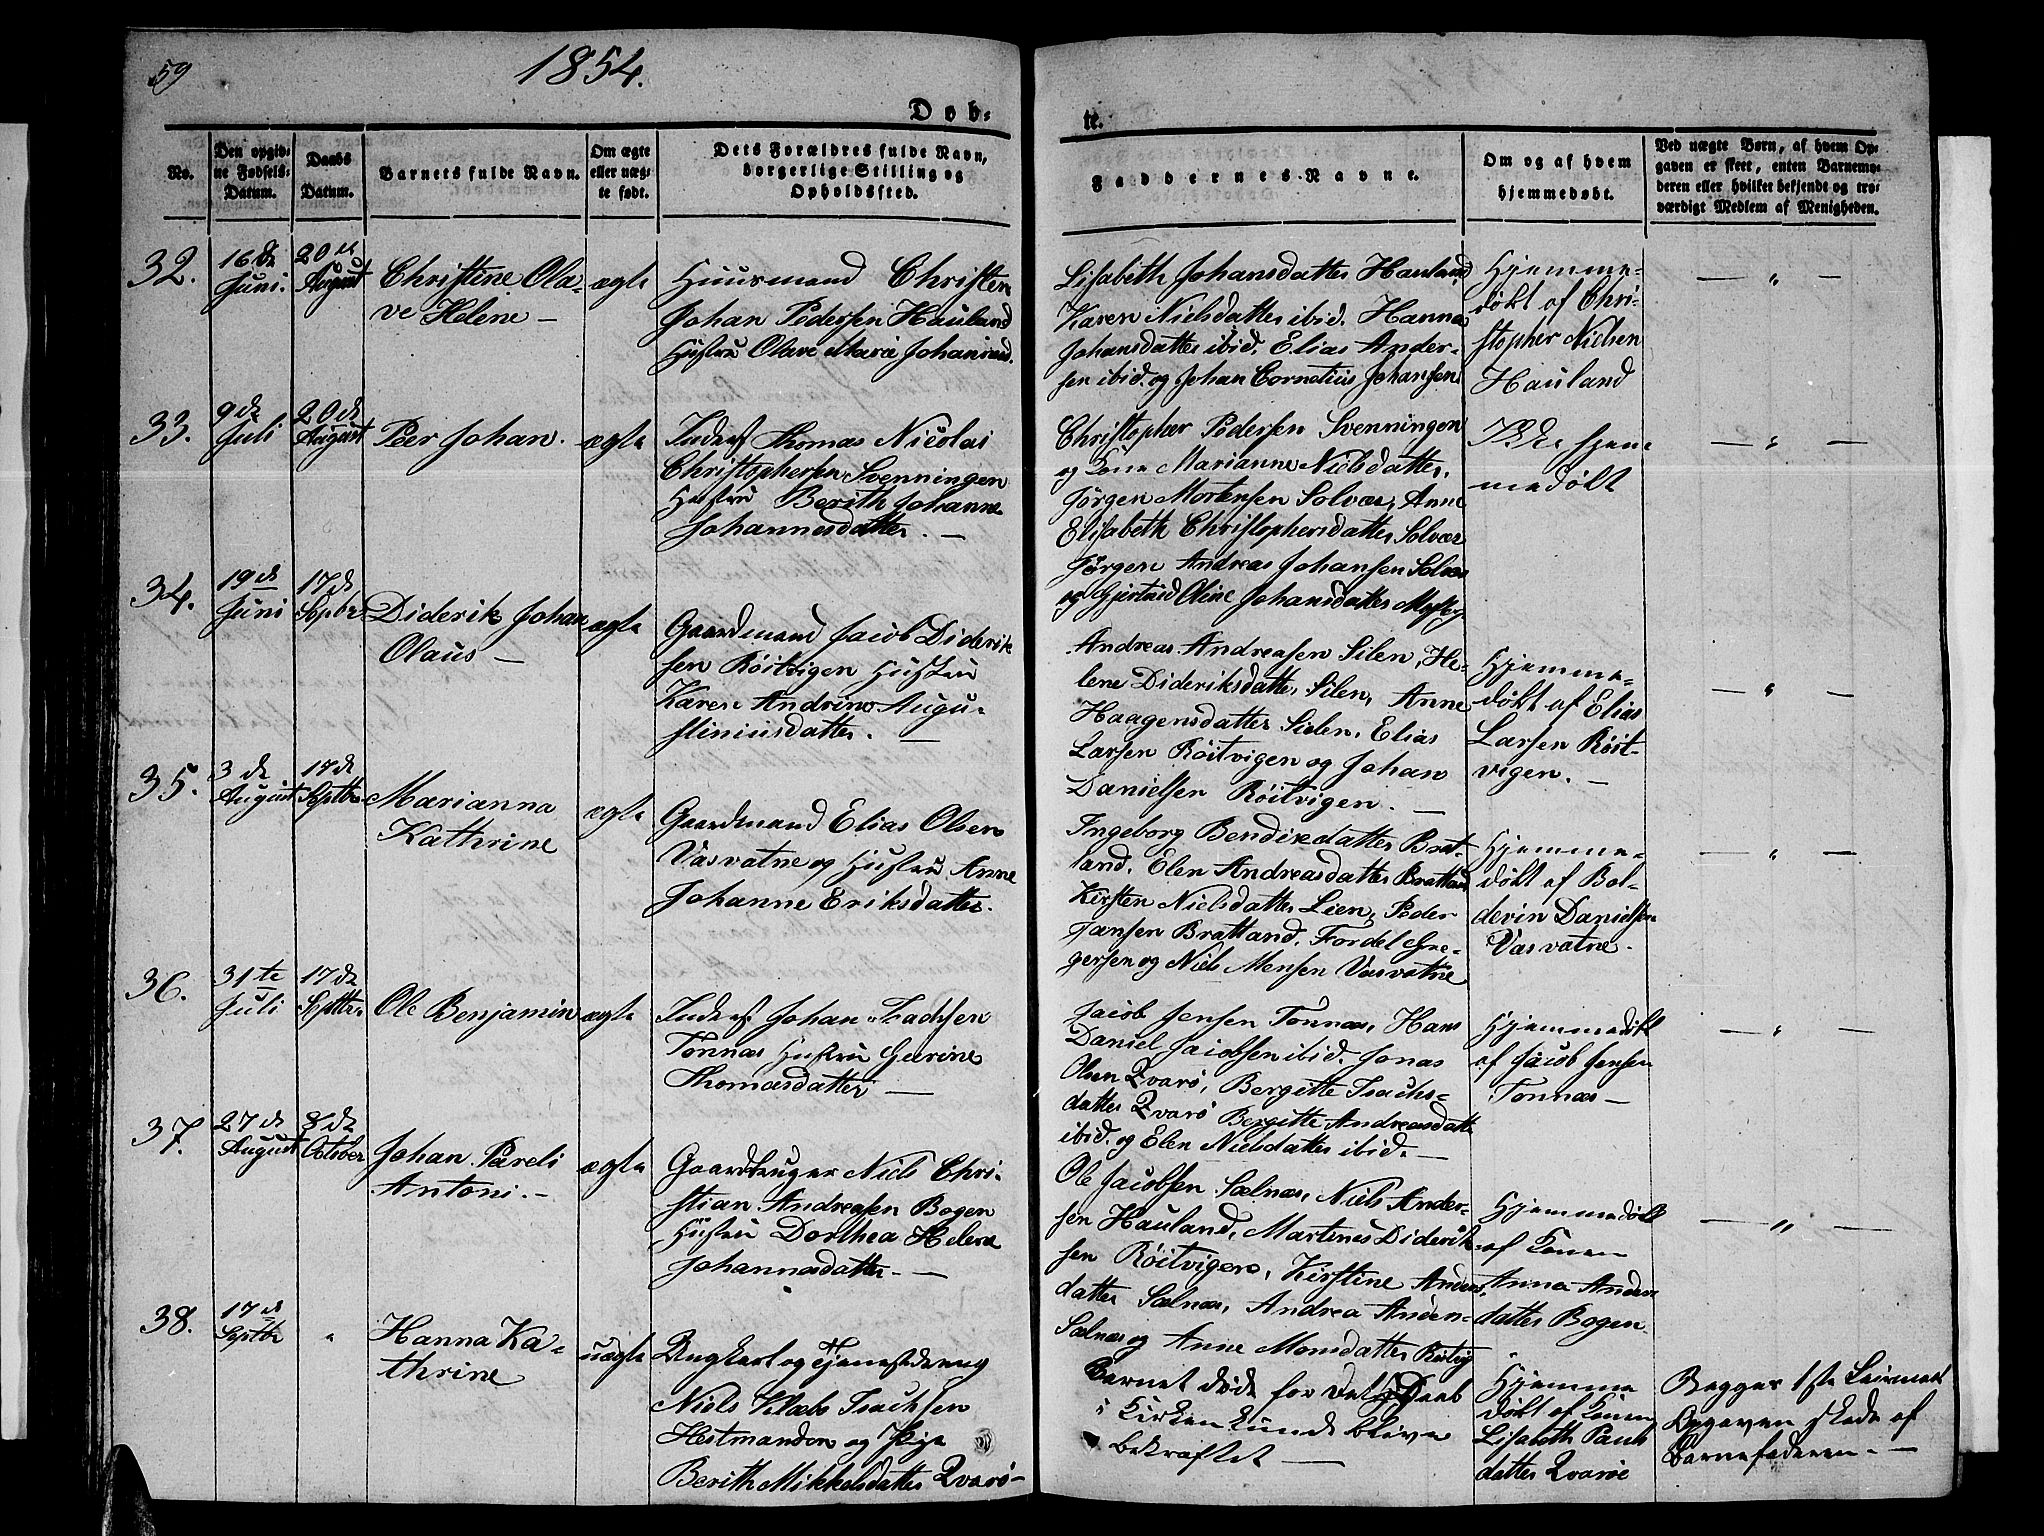 59
1854.
Døb-
te.
No.
Den opgiv-
ne Fødsels-
Datum.
Daabs
Datum.
Barnets fulde Navn.
Om ægte
eller uæg-
te født.
Dets Forældres fulde Navn,
borgerlige Stilling og
Opholdssted.
Faddernes Navne.
Om og af hvem
hjemmedøbt.
Ved uægte Børn, af hvem Op-
gaven er skeet, enten Barnemo-
deren eller hvilket bekjendt og tro-
værdigt Medlem af Menigheden.
32.
16de
Juni.
20de
August
Christine Ola-
ve Helene —
ægte
Huusmand Christen
Johan Pedersen Hauland
Hustru Olave Maria Johannesd.
Lisabeth Johansdatter Hauland,
Karen Nielsdatter ibid. Hanna
Johansdatter ibid. Elias Ander-
sen ibid. og Johan Cornelius Johansen
Hjemme-
døbt af Chri-
stopher Nielsen
Hauland
— " —
33.
9de
Juli
20de
August
Peer Johan.
ægte
Inderst Thomas Nicolai
Christophersen Svenningen
Hustru Berith Johanna
Johannesdatter. —
Christopher Pedersen Svenningen
og Kone Marianne Nielsdatter,
Jørgen Mortensen Solvær, Anne
Elisabeth Christophersdatter Solvær
Jørgen Andreas Johansen Solvær
og Gjertrud Oline Johansdatter
Ikke hjem-
medøbt
— " —
34.
19de
Juni
17de
Septbr
Diderik Johan
Olaus —
ægte
Gaardmand Jacob Diderik-
sen Röitvigen Hustru
Karen Andrine Augu-
stiniusdatter. —
Andreas Andreasen Silen, He-
lene Dideriksdatter Silen, Anne
Haagensdatter Sielen, Elias
Larsen Röitvigen og Johan
Danielsen Röitvigen. —
Hjemme-
døbt af Elias
Larsen Röit-
vigen. —
— " —
35.
3de
August
17de
Septbr
Marianna
Kathrine
ægte
Gaardmand Elias Olsen
Vasvatne og Hustru Anne
Johanne Eriksdatter.
Ingeborg Bendixdatter Brat-
land, Elen Andreasdatter Bratland
Kirsten Nielsdatter Leen, Peder
Jansen Bratland, Fordel Gre-
gersen og Niels Monsen Vasvatne
Hjemme-
døbt af Bal-
devin Danielsen
Vasvatne.
— " —
36.
31te
Juli
17de
Septbr.
Ole Benjamin
ægte
Inderst Johan Isachsen
Tonnæs Hustru Gurine
Thomasdatter —
Jacob Jensen Tonnæs, Hans
Daniel Jacobsen ibid. Jonas
Olsen Qvarö, Bergitte Isachs-
datter Qvarö Bergitte Andreasdatt
ibid. og Elen Nielsdatter ibid. —
Hjemmedøbt
af Jacob Jensen
Tonnæs —
— " —
37.
27de
August
8de
October
Johan Pareli
Antoni. —
ægte
Gaardbruger Niels Chri-
stian Andreasen Bogen
Hustru Dorthea Helena
Johannesdatter. —
Ole Jacobsen Sælnæs, Niels Ander-
sen Hauland, Martines Diderik-
sen Röitvigen, Kirstine Anders-
datter Sælnæs, Andrea Anders-
Sælnæs og Anne Monsdatter Röitvig
Hjemmedøbt
af Konen
Anna Anders
datter Bogen.
— " —
38.
17de
Septbr
"
Hanna Ka-
thrine
uægte
Ungkarl og Tjenestedreng
Niels Klæbo Isachsen
Hestmanden og Pige
Berith Mikkelsdatter Qvarö —
Barnet døde før det Daab
i Kirken kunde blive
bekræftet —
Hjemme
døbt af Konen
Lisabeth Pauls
datter Qvaröe
Begges 1ste Leiermaal
Opgaven skede af
Barnefaderen. —